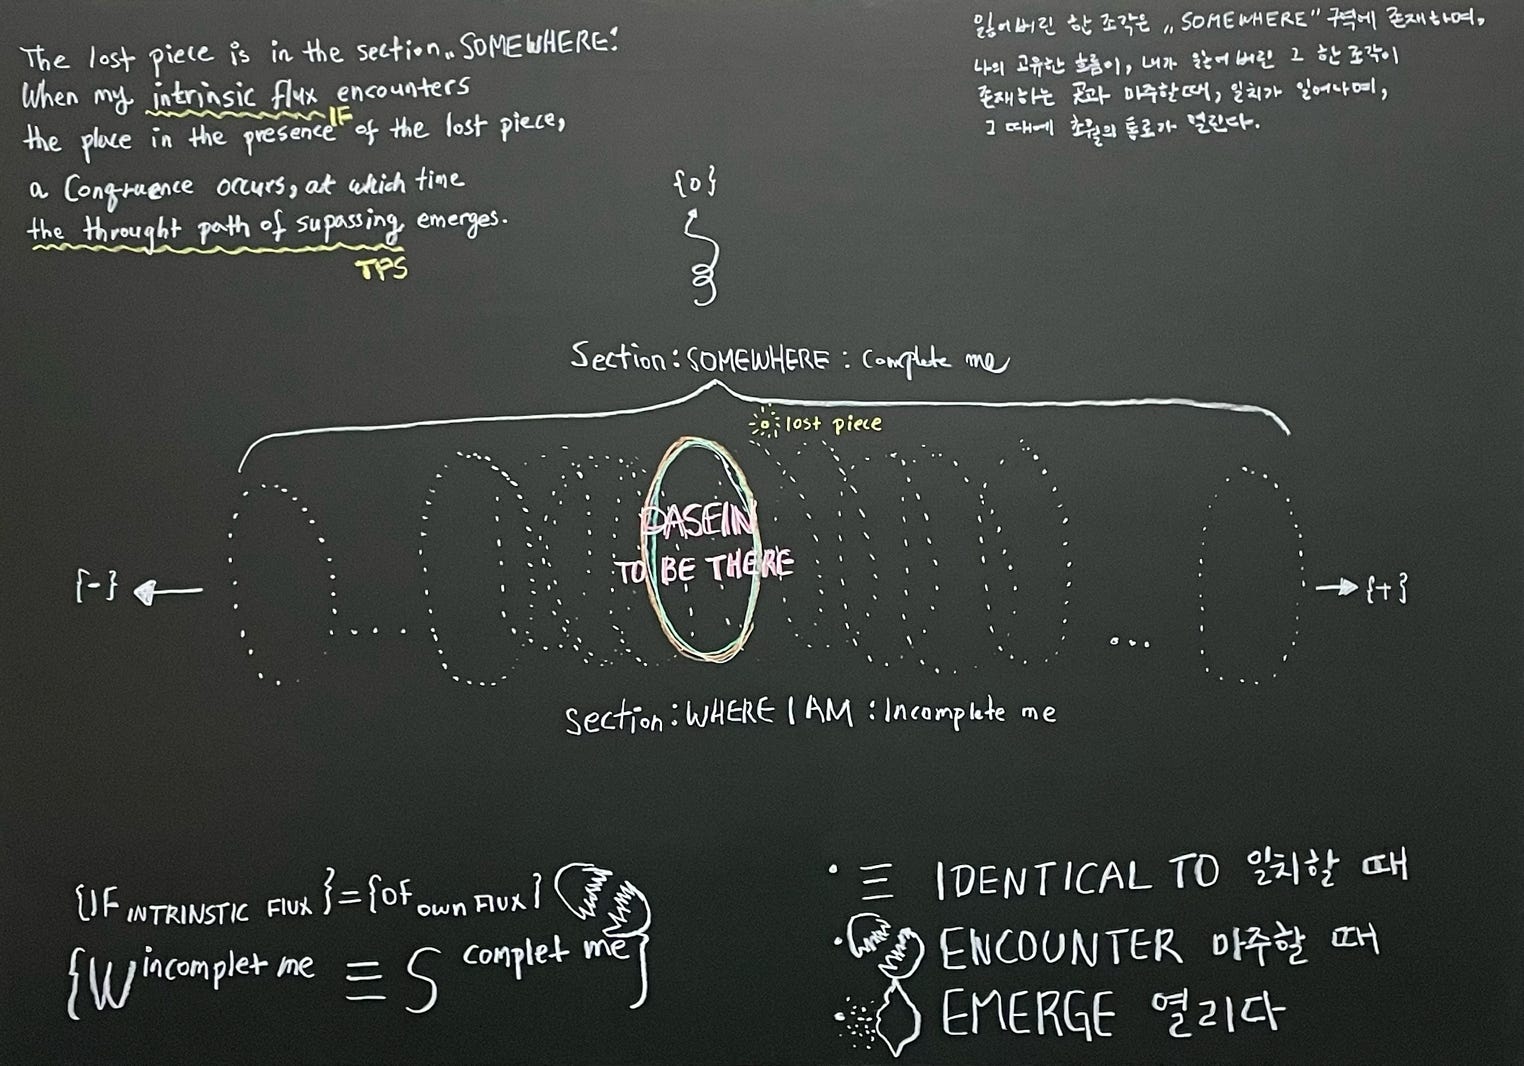 The lost piece is in the section „SOMEWHERE".
When my intrinsic flux encounters
IF
the place in the presence of the lost piece,
a Congruence occurs, at which time
the throught path of supassing emerges.
TPS
잃어버린 한 조각은 „SOMEWHERE" 구역에 존재하며,
나의 고유한 흐름이, 내가 잃어버린 그 한 조각이
존재하는 곳과 마주할때, 일치가 일어나며,
그 때에 초월의 통로가 열린다.
{0}
Section: SOMEWHERE : Complete me
lost piece
DASEIN
TO BE THERE
{-}
{+}
Section: WHERE I AM : Incomplete me
{IF INTRINSTIC FLUX} = {OF OWN FLUX}
{W incomplet me ≡ S complet me}
• ≡ IDENTICAL TO 일치할 때
• ENCOUNTER 마주할 때
• EMERGE 열리다